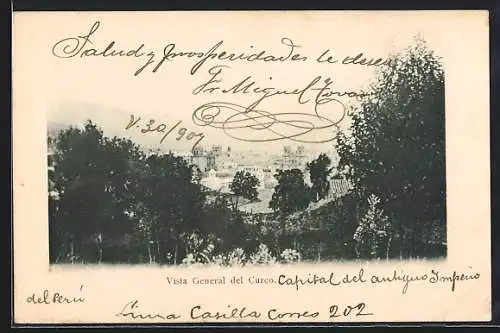 Salud y prosperidades le desea
Fr. Miguel Tovar
V. 30/907
Vista General del Cuzco. Capital del antiguo Imperio
del Perú
Lima Casilla Correo 202